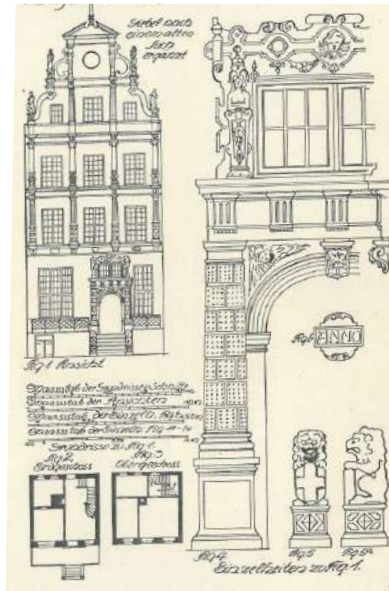 Giebel nach
einem alten
Stich
ergänzt
Fig. 1 Ansicht
ANNO
Fig. 6
Maasstab der Grundrisse u. Schnitte
Maasstab der Ansichten
Maasstab der Einzeln. Fig.
Maasstab der Einzeln. Fig.
Grundrisse zu Fig. 1.
Fig. 2. Fig. 3
Erdgeschoss Obergeschoss
Fig. 4 Fig. 5
Einzelheiten zu Fig. 1.